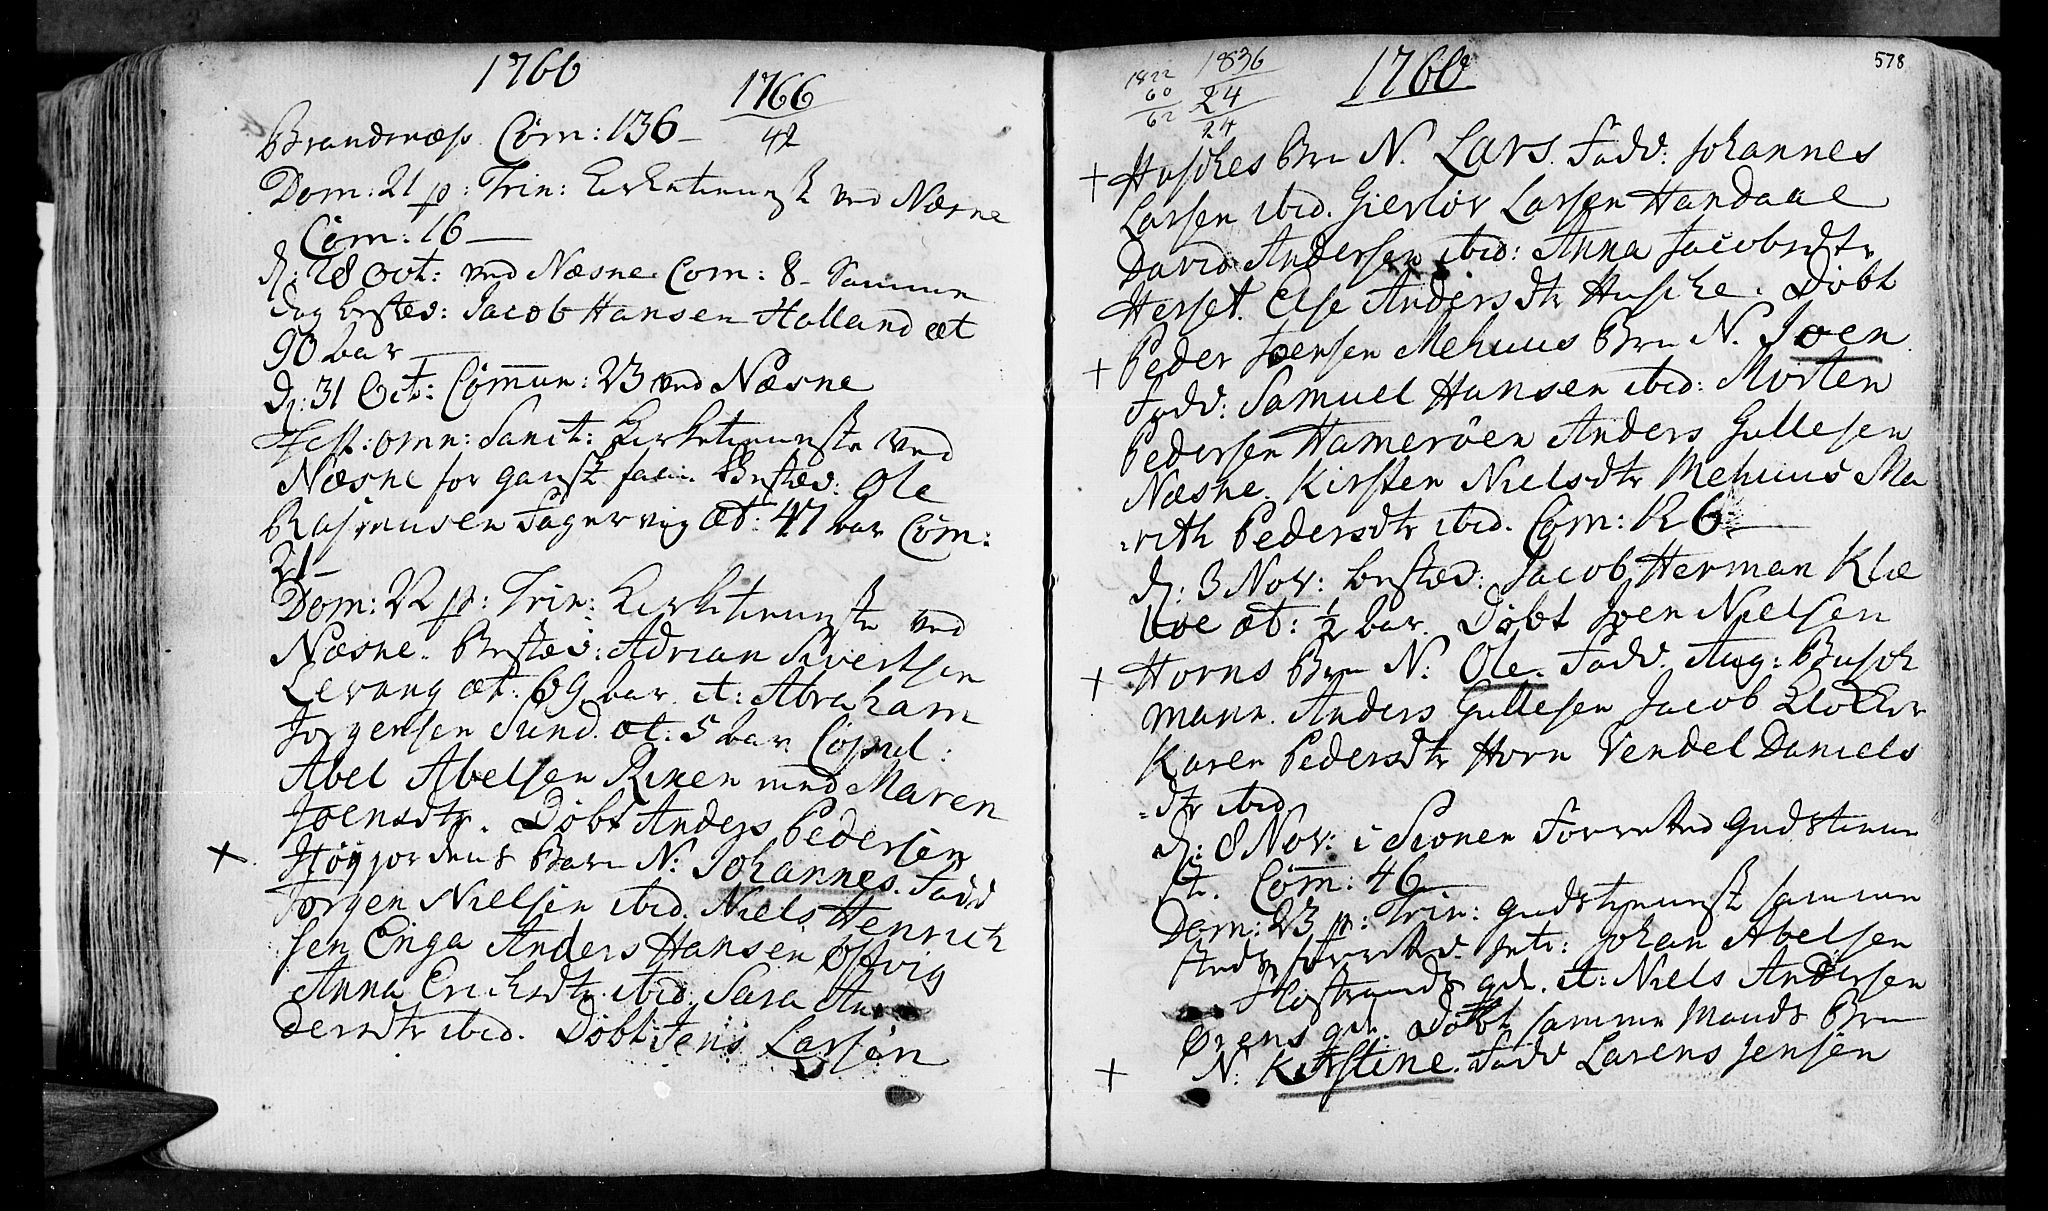 1766
1766
42
Brandsnæss. Com̄: 136 -
Dom: 21 p: Trin: Kirketieniste ved Næsne
Com̄: 16 -
d: 28 Oct: ved Næsne. Com: 8 - Samme
dag bested: Jacob Hansen Holland æt
90 aar -
d: 31 Oct: Com̄un: 23 ved Næsne
Fest: omn: Sanct: Kirketieniste ved
Næsne for gansk faa. Bested: Ole
Rasmusen Fagervig Æt: 47 aar Com̄:
21 -
Dom: 22 p: Trin: Kirketieniste ved
Næsne. Bested: Adrian Sivertsen
Levang æt: 69 aar. it: Abraham
Jørgensen Sund. æt: 5 aar. Copul:
Abel Abelsen Rinen med Maren
Joensdtr. Döbt Anders Pedersen
+ Høyjordens Barn N: Johannes. Fadd
Jörgen Nielsen ibid. Niels Henrich
sen Enga Anders Hansen Øssvig
Anna Erichsdtr. ibid. Sara An
dersdtr ibid. Döbt: Jens Larsen
1822
60
62
1836
24
24
1766
578
+ Husches Brn N. Lars. Fadd: Johannes
Larsen ibid. Giertör Larsen Handaae
David Andersen ibid: Anna Jacobsdtr
Herset. Else Andersdtr Husche. Döbt
+ Peder Joensen Mehuus Brn N. Joen.
Fadd: Samuel Hansen ibid: Morten
Pedersen Hameröen Anders Gullesen
Næsne. Kirsten Nielsdtr Mehuus Ma
-rith Pedersdtr ibid. Com: 126 -
d: 3 Nov: bested: Jacob Herman Klæ
boe æt: 1/2 aar. Döbt Joen Nielsen
+ Horns Brn N: Ole. Fadd. Aug: Busch
mann. Anders Gullesen Jacob Klocker
Karen Pedersdtr Horn Vendel Daniels
-dtr ibid
d: 8 Nov: i Sionen Forretted Gudstiene
st. Com̄: 46 -
Dom: 23 p: Trin: gudstienist samme
sted forretted. Intr: Johan Abelsen
Flostrands qde. it: Niels Andersen
Ørens qde. Döbt samme Mands Brn
+ N: Kirstine. Fadd Larens Jensen